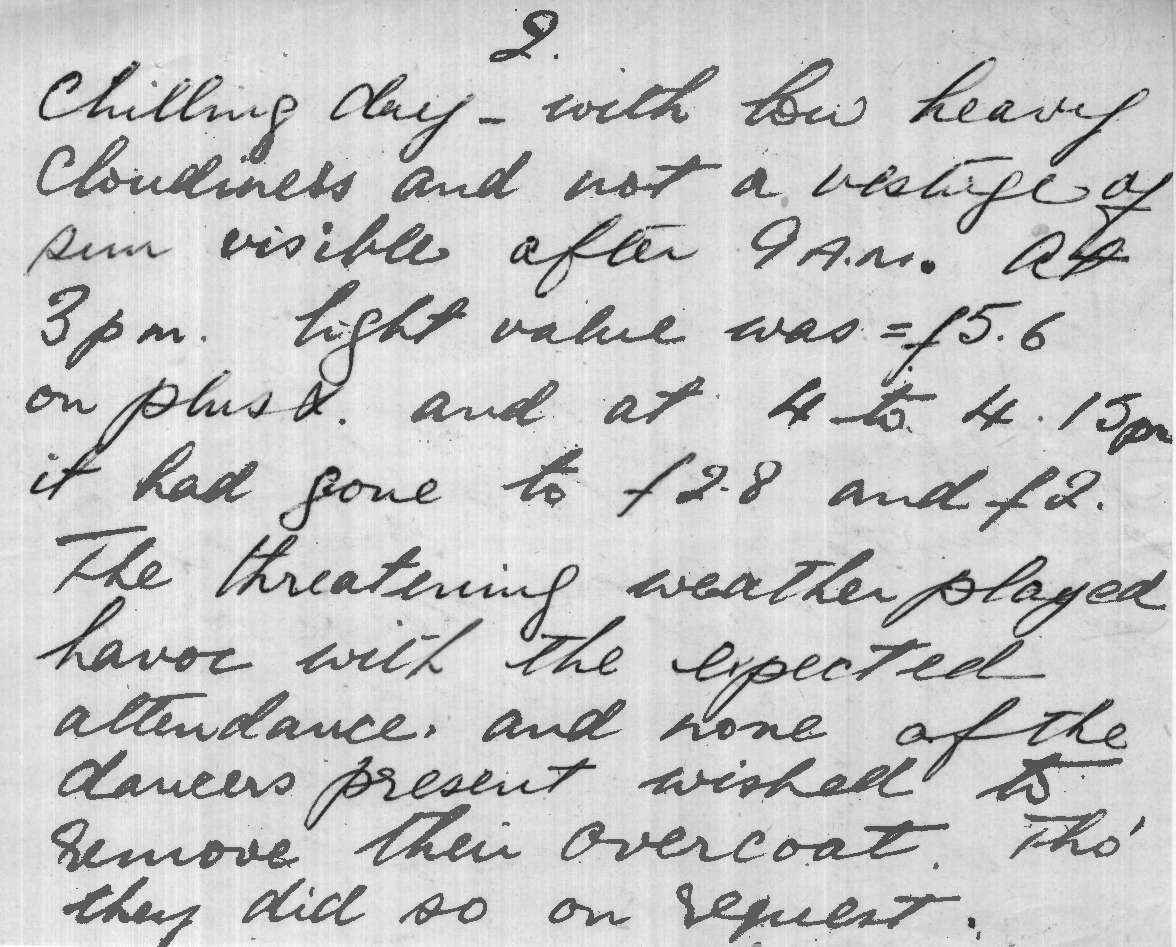 2.
Chilling day - with low heavy
Cloudiness and not a vestige of
sun visible after 9 A.M. At
3 pm. light value was = f5.6
on plus X. and at 4 to 4.15 pm
it had gone to f2.8 and f2.
The threatening weather played
havoc with the expected
attendance. and none of the
dancers present wished to
remove their overcoat. Tho'
they did so on request.